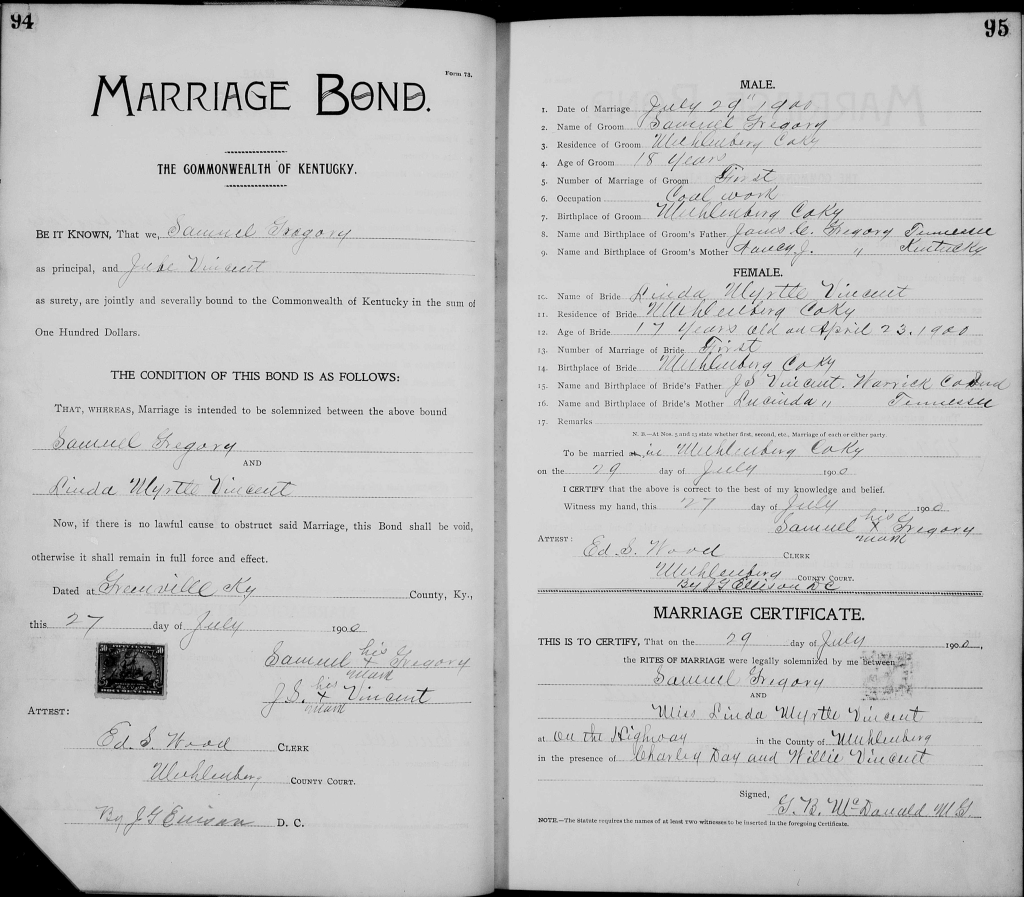 94
Form 73.
MARRIAGE BOND.
THE COMMONWEALTH OF KENTUCKY.
BE IT KNOWN, That we, Samuel Gregory
as principal, and Jube Vincent
as surety, are jointly and severally bound to the Commonwealth of Kentucky in the sum of
One Hundred Dollars.
THE CONDITION OF THIS BOND IS AS FOLLOWS:
THAT, WHEREAS, Marriage is intended to be solemnized between the above bound
Samuel Gregory
AND
Linda Myrtle Vincent
Now, if there is no lawful cause to obstruct said Marriage, this Bond shall be void,
otherwise it shall remain in full force and effect.
Dated at Greenville Ky County, Ky.,
this 27 day of July 1900
50 FIFTY CENTS 50
DOCUMENTARY
Samuel his x mark Gregory
J.S. his x mark Vincent
ATTEST:
Ed. S. Wood CLERK
Muhlenberg COUNTY COURT.
By J G Ellison D. C.
95
MALE.
1. Date of Marriage July 29" 1900
2. Name of Groom Samuel Gregory
3. Residence of Groom Muhlenberg Co Ky
4. Age of Groom 18 years
5. Number of Marriage of Groom First
6. Occupation Coal work
7. Birthplace of Groom Muhlenberg Co Ky
8. Name and Birthplace of Groom's Father James C. Gregory Tennessee
9. Name and Birthplace of Groom's Mother Nancy J. " Kentucky
FEMALE.
10. Name of Bride Linda Myrtle Vincent
11. Residence of Bride Muhlenberg Co Ky
12. Age of Bride 17 years old on April 23, 1900
13. Number of Marriage of Bride First
14. Birthplace of Bride Muhlenberg Co Ky
15. Name and Birthplace of Bride's Father J S Vincent. Warrick Co Ind
16. Name and Birthplace of Bride's Mother Lucinda " Tennessee
17. Remarks
N. B.—At Nos. 5 and 13 state whether first, second, etc., Marriage of each or either party
To be married at in Muhlenberg Co Ky
on the 29 day of July 1900
I CERTIFY that the above is correct to the best of my knowledge and belief.
Witness my hand, this 27 day of July 1900
Samuel his x mark Gregory
ATTEST:
Ed. S. Wood CLERK
Muhlenberg COUNTY COURT.
By J G Ellison D C
MARRIAGE CERTIFICATE.
THIS IS TO CERTIFY, That on the 29 day of July 1900,
the RITES OF MARRIAGE were legally solemnized by me between
Samuel Gregory
AND
Miss Linda Myrtle Vincent
at On the Highway in the County of Muhlenberg
in the presence of Charley Day and Willie Vincent
Signed,
G. B. McDonald M.G.
NOTE.—The Statute requires the names of at least two witnesses to be inserted in the foregoing Certificate.